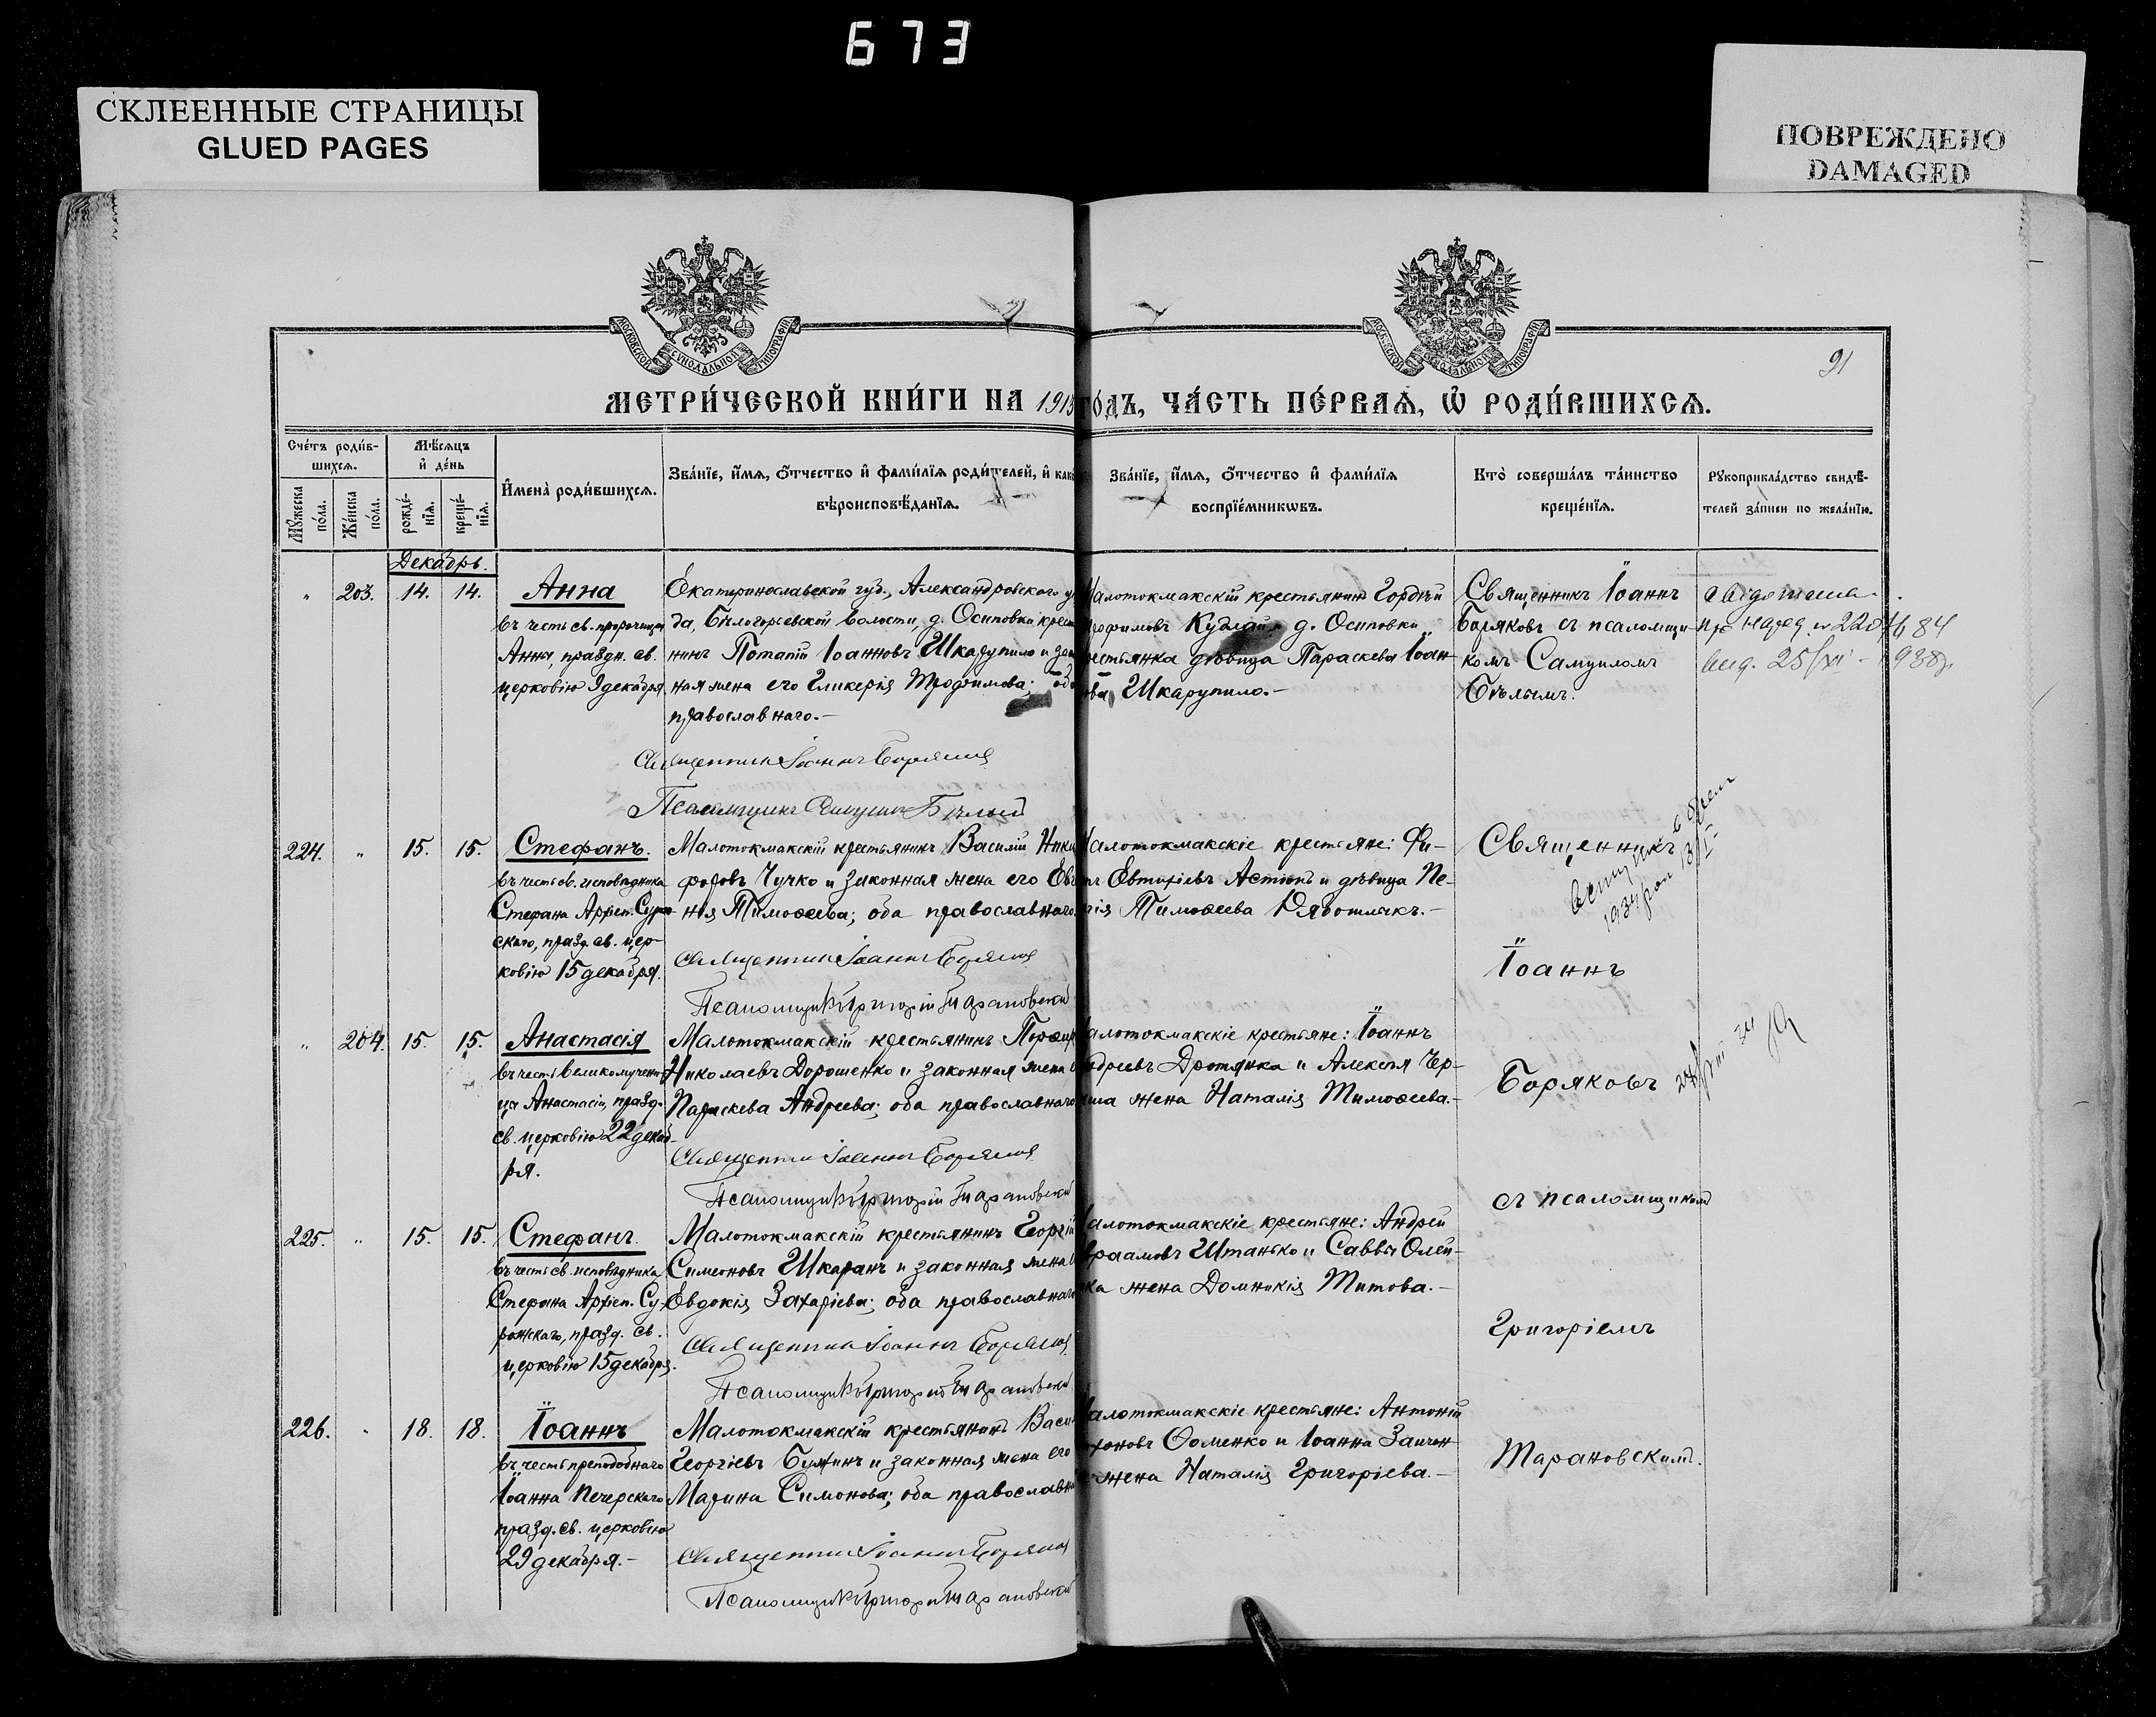 673
СКЛЕЕННЫЕ СТРАНИЦЫ
GLUED PAGES
ПОВРЕЖДЕНО
DAMAGED
МОСКОВСКОЙ СѴНОДАЛЬНОЙ ТИПОГРАФІИ
МОСКОВСКОЙ СѴНОДАЛЬНОЙ ТИПОГРАФІИ
91
МЕТРИ́ЧЕСКОЙ КНИ́ГИ НА 1913 ГО́ДЪ, ЧА́СТЬ ПЕ́РВАѦ, Ѡ РОДИ́ВШИХСѦ.
Сче́тъ роди́в-
шихсѧ.
Мѣ́сѧцъ
и де́нь
Мꙋ́жеска по́ла.
Же́нска по́ла.
рожде́-
нїѧ.
креще́-
нїѧ.
И҆мена̀ роди́вшихсѧ.
Зва́нїе, и҆́мѧ, ѻ҆́тчество и҆ фами́лїѧ роди́телей, и҆ как
вѣроисповѣ́данїѧ.
Зва́нїе, и҆́мѧ, ѻ҆́тчество и҆ фами́лїѧ
воспрїе́мникѡвъ.
Кто̀ соверша́лъ та́инство
креще́нїѧ.
Рꙋкоприкла́дство свидѣ́-
телей за́писи по жела́нїю.
Декабрь.
" 203. 14. 14.
Анна
въ честь св. пророчицы
Анны, праздн. св.
церковію 9 декабря.
Екатеринославской губ., Александровскаго у
да, Бѣлогорьевской волости, д. Осиповки крест
нинъ Потапій Іоанновъ Шкарупило и зак
ная жена его Гликерія Трофимова; оба
православнаго.-
Священникъ Іоаннъ Боряковъ
Псаломщикъ Самуилъ Бѣлый
Малотокмакскій крестьянинъ Гордѣй
рофимовъ Кудлай и д. Осиповки
рестьянка дѣвица Параскева Іоан-
ова Шкарупило.-
Священникъ Іоаннъ
Боряковъ съ псаломщи-
комъ Самуиломъ
Бѣлымъ.
224. " 15. 15.
Стефанъ.
въ честь св. исповѣдника
Стефана Архіеп. Сурож-
скаго, празд. св. цер-
ковію 15 декабря.
Малотокмакскій крестьянинъ Василій Ники
форовъ Чучко и законная жена его Евг
нія Тимоѳеева; оба православнаго.
Священникъ Іоаннъ Боряковъ
Псаломщикъ Григорій Тарановскій
Малотокмакскіе крестьяне: Фи-
Евтихіевъ и дѣвица Ле-
рія Тимоѳеева
Священникъ
Іоаннъ
" 204. 15. 15.
Анастасія
въ честь великомучени-
цы Анастасіи, празд.
св. церковію 22 декаб-
ря.
Малотокмакскій крестьянинъ Порфир
Николаевъ Дорошенко и законная жена
Параскева Андреева; оба православнаго
Священникъ Іоаннъ Боряковъ
Псаломщикъ Григорій Тарановскій
алотокмакскіе крестьяне: Іоаннъ
ндреевъ Дротянка и Алексѣя Чер-
жена Наталія Тимоѳеева.-
Боряковъ
225. " 15. 15.
Стефанъ.
въ честь св. исповѣдника
Стефана Архіеп. Су-
рожскаго, празд. св.
церковію 15 декабря.
Малотокмакскій крестьянинъ Георгій
Симеоновъ Шкаранъ и законная жена
Евдокія Захаріева; оба православнаго
Священникъ Іоаннъ Боряковъ
Псаломщикъ Григорій Тарановскій
алотокмакскіе крестьяне: Андрей
враамовъ Штанько и Саввы Олей-
ка жена Домникія Титова.-
съ псаломщикомъ
Григоріемъ
226. " 18. 18.
Іоаннъ
въ честь преподобнаго
Іоанна Печерскаго
празд. св. церковію
29 декабря.-
Малотокмакскій крестьянинъ Васи
Георгіевъ и законная жена его
Марина Симонова; оба православн
Священникъ Іоаннъ Боряковъ
Псаломщикъ Григорій Тарановскій
алотокмакскіе крестьяне: Антоній
Ѳоменко и Іоанна Заичен
жена Наталія Григоріева.-
Тарановскимъ.